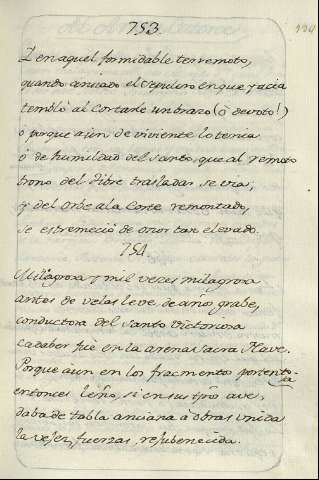 753.
I en aquel formidable terremoto,
quando ansiado el Sepulcro en que yacia
tembló al cortarle un brazo (ò devoto!)
o porque aùn de viviente lo tenia
ò de humildad del Santo, que al remoto
trono del Tibre trasladar se via,
y del Orbe a la Corte remontado,
se estremeciò de oror tan elevado.
754.
Milagrosa y mil veces milagrosa
antes de velas leve, de años grabe,
conductora del Santo Victoriosa
cadaber fuè en la arena sacra Nave.
Porque aun en los fracmentos portento-
sa
entonces leño, si en sus tpõs ave,
daba de tabla anciana à obras unida
la vejez, fuerzas, rejubenecida.